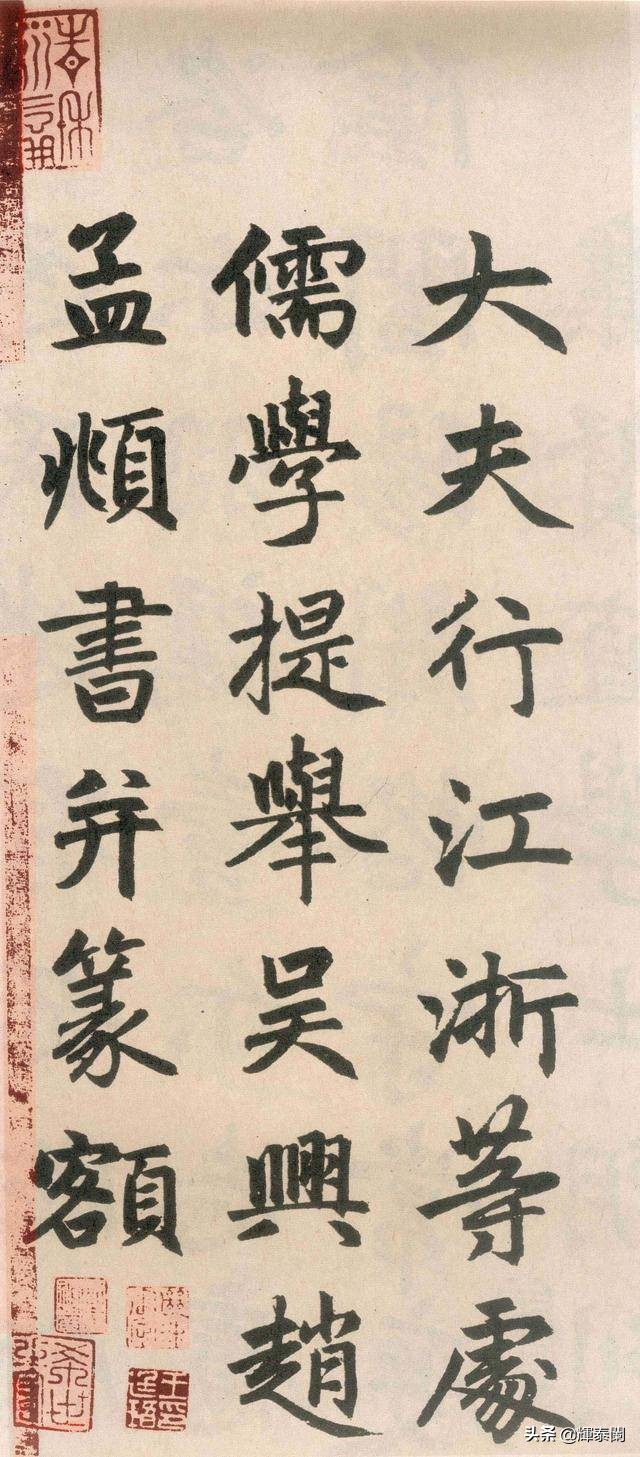 大夫行江浙等處
儒學提舉吳興趙
孟頫書并篆額
头条 @輝泰閣